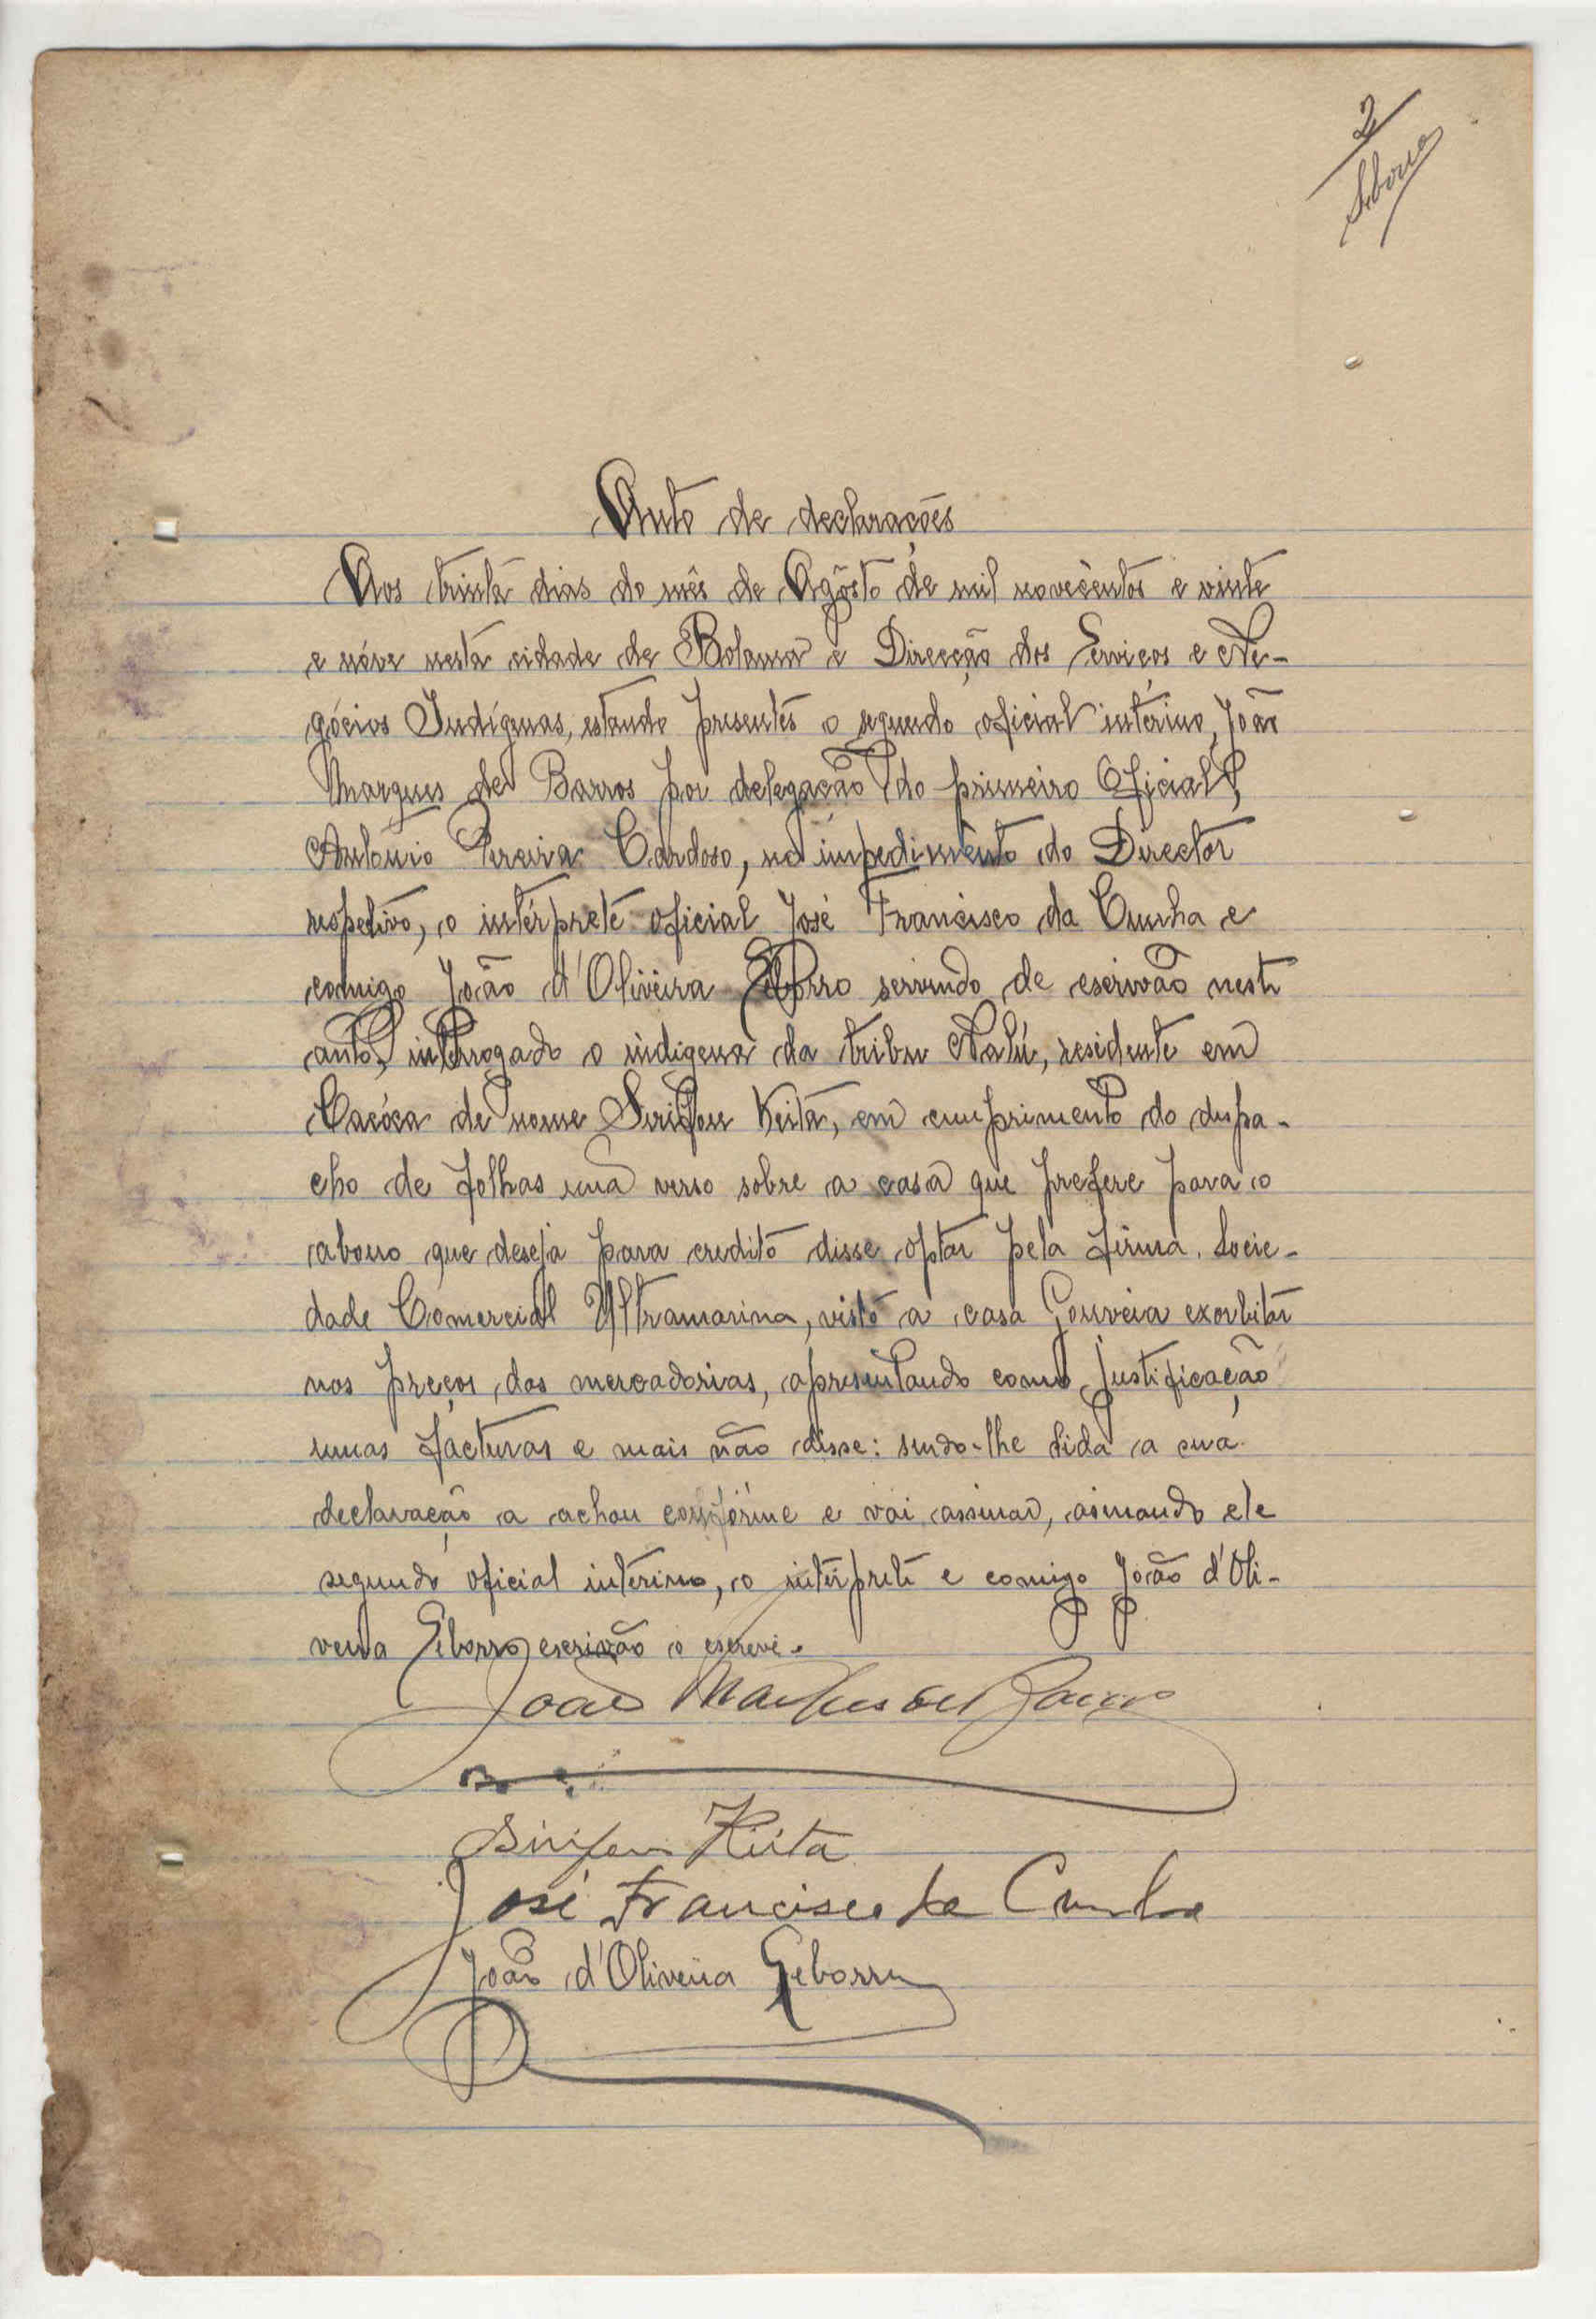 2
Auto de declarações
Aos trinta dias do mês de Agôsto de mil novecentos e vinte
e nóve nesta cidade de Bolama e Direcção dos Serviços e Ne-
gócios Indígenas, estando presentes o segundo oficial interino, João
Marques de Barros por delegação do primeiro Oficial,
António Pereira Cardoso, no impedimento do Director
respetivo, o intérprete oficial José Francisco da Cunha e
comigo João d'Oliveira Seborro servindo de escrivão neste
auto, interrogado o indigena da tribu Nalú, residente em
Cacóca de nome Serifou Keita, em cumprimento do despa-
cho de folhas uma verso sobre a casa que prefere para o
abono que deseja para credito disse optar pela firma Socie-
dade Comercial Ultramarina, visto a casa Gouveia exorbitar
nos preços das mercadorias, apresentando como justificação
umas facturas e mais não disse: sendo-lhe lida a sua
declaração a achou confórme e vai assinar, assinando ele
segundo oficial interino, o intérprete e comigo João d'Oli-
veira Seborro escrivão o escrevi.
João Marques de Barros
Keita
José Francisco da Cunha
João d'Oliveira Seborro